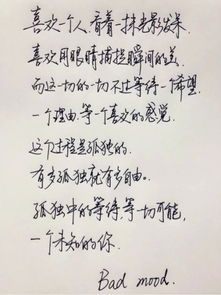 喜欢一个人,看着一抹光景发呆.
喜欢用眼睛捕捉瞬间的美.
而这一切的一切不过等待一个希望.
一个理由,等一个喜欢的感觉.
这个过程是孤独的.
有多孤独就有多自由。
孤独中的等待,等一切可能,
一个未知的你.
Bad mood.